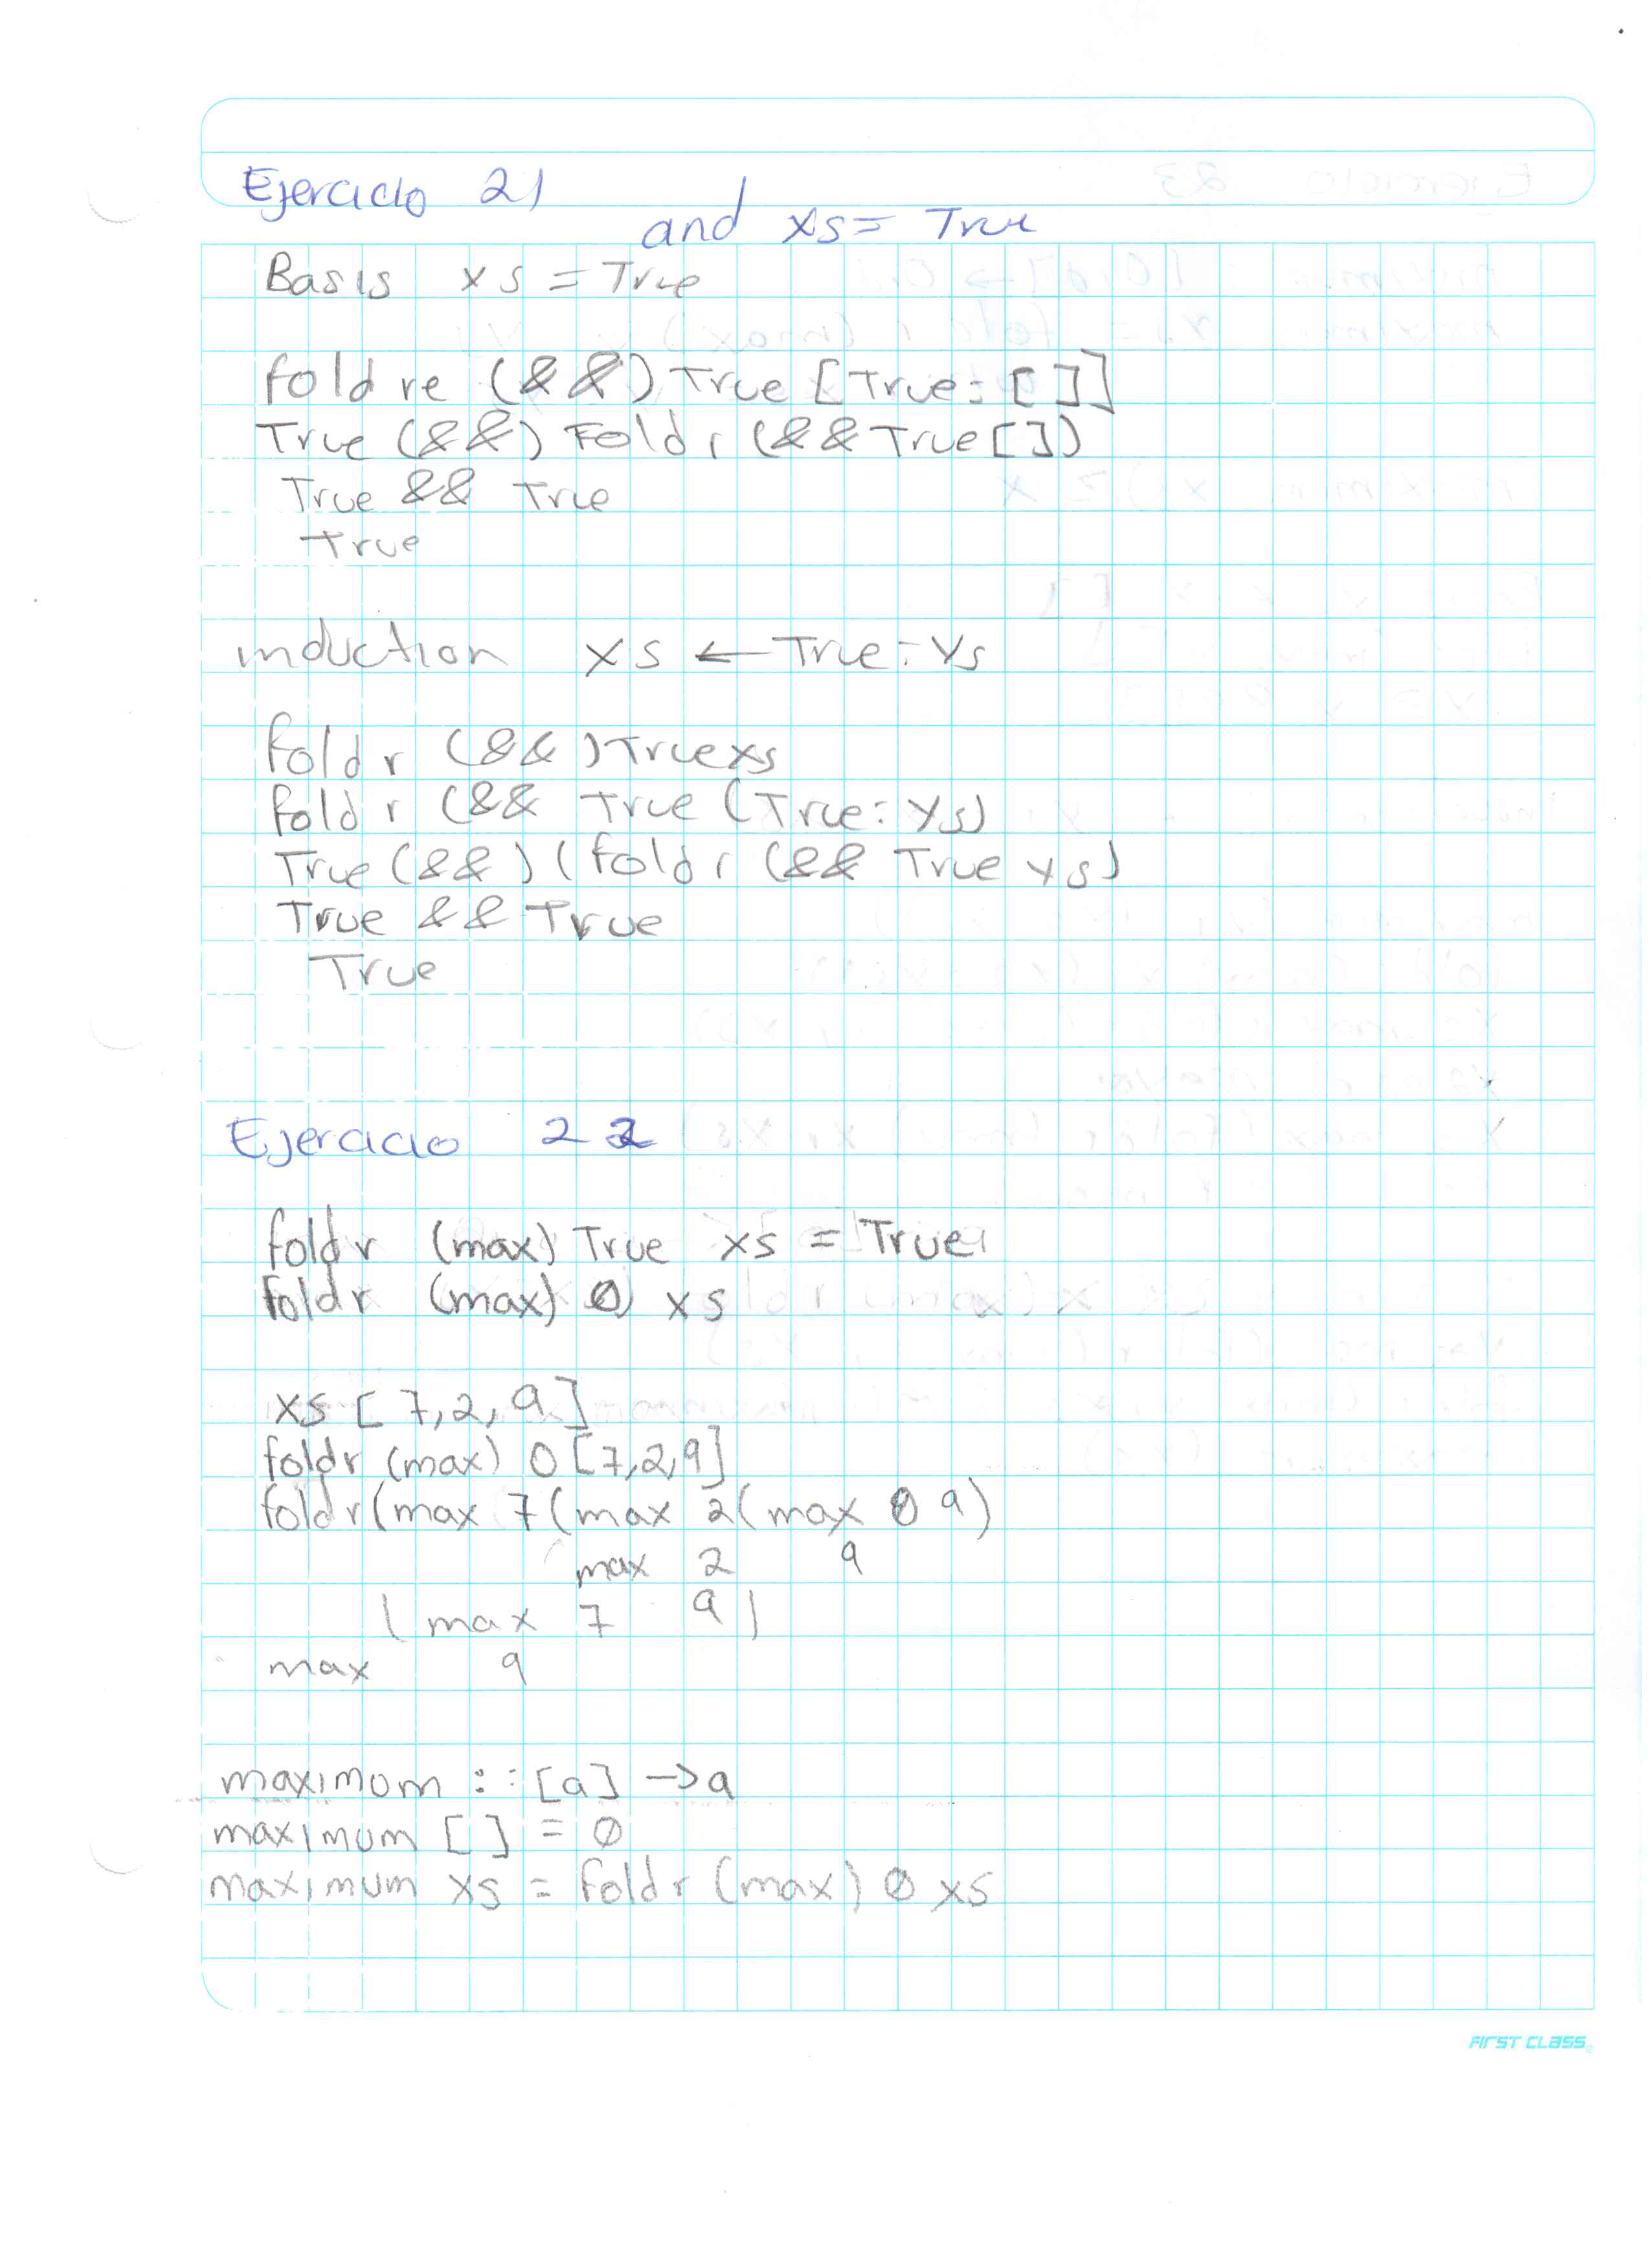 Ejercicio 21
and xs= True
Basis xs = True
fold re (&&) True [True: []]
True (&&) Foldr (&& True [])
True && True
True
induction xs ← True: ys
foldr (&&) True xs
foldr (&& True (True: ys)
True (&&) (foldr (&& True ys)
True && True
True
Ejercicio 22
foldr (max) True xs = True
foldr (max) 0 xs
xs [7,2,9]
foldr (max) 0 [7,2,9]
foldr (max 7 (max 2 (max 0 9)
max 2 9
(max 7 9)
max 9
maximum :: [a] -> a
maximum [] = 0
maximum xs = foldr (max) 0 xs
FIRST CLASS